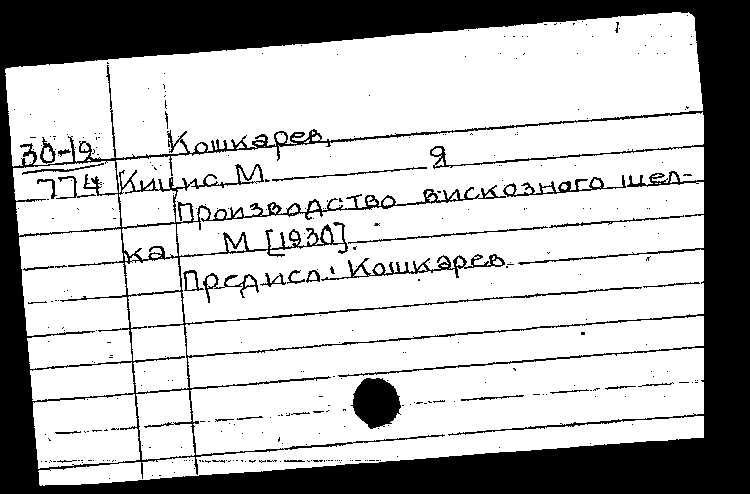 30-12 Кошкарев,
774 Кицис, М. Я
Производство вискозного шел-
ка. М [1930].
Предисл.: Кошкарев